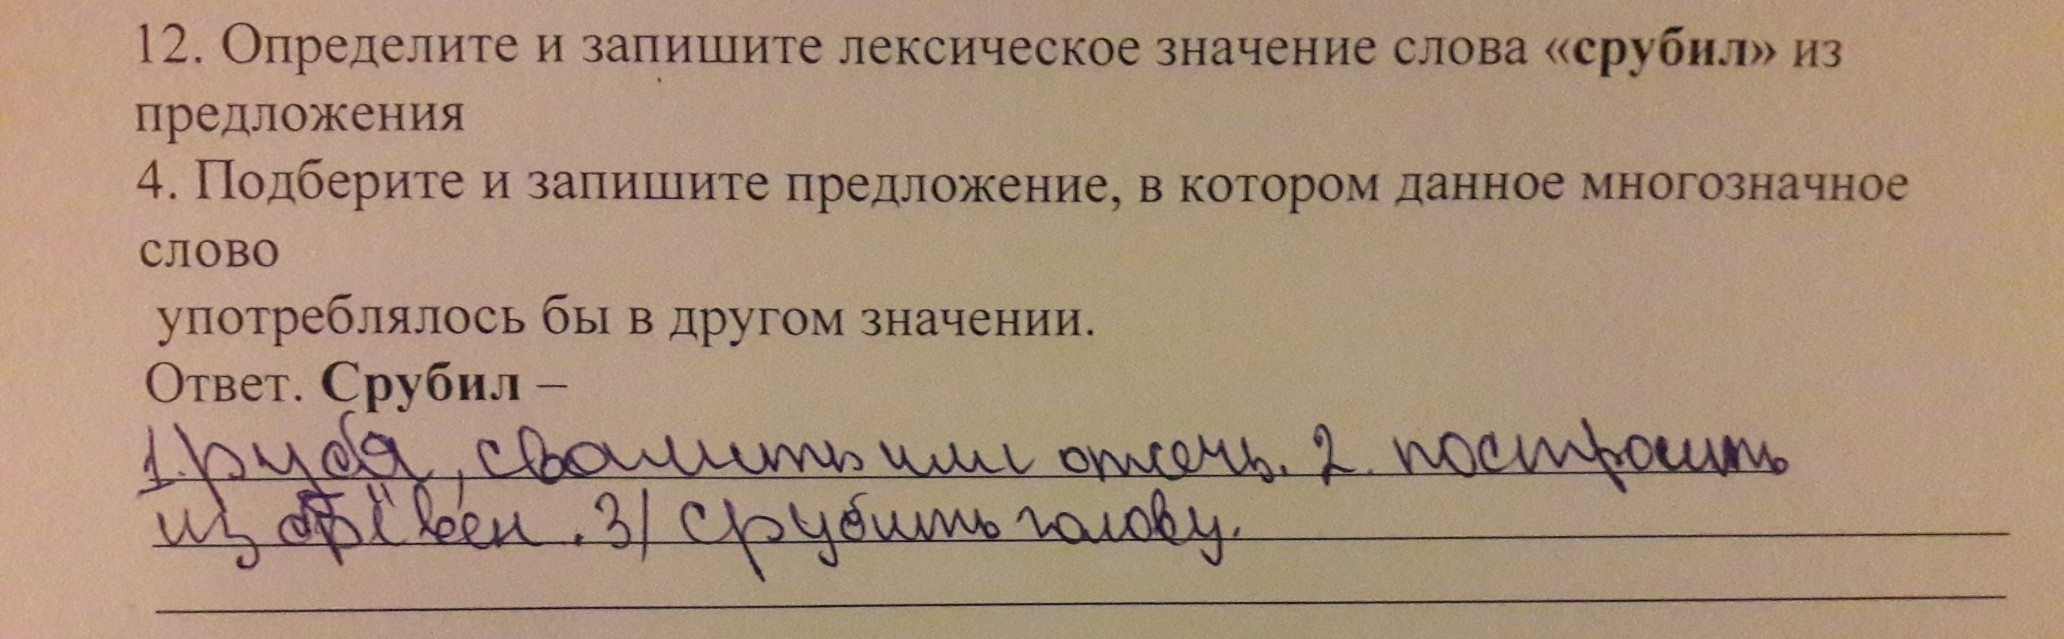 12. Определите и запишите лексическое значение слова «срубил» из
предложения
4. Подберите и запишите предложение, в котором данное многозначное
слово
употреблялось бы в другом значении.
Ответ. Срубил –
1. рубя, свалить или отсечь. 2. построить
из брёвен. 3) срубить голову.